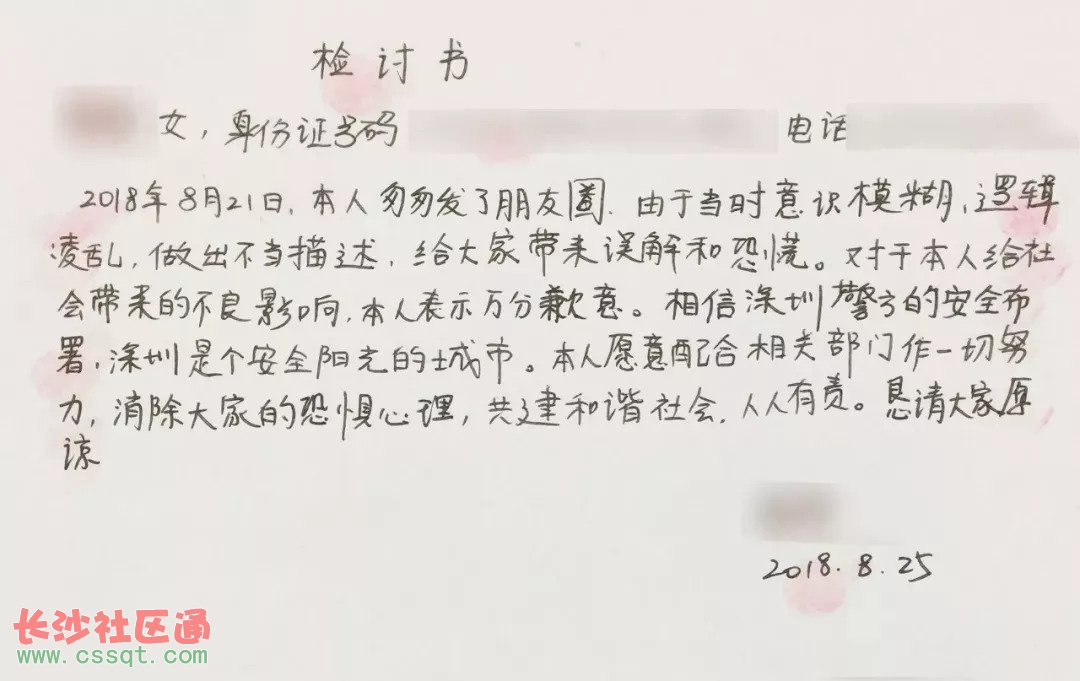 检讨书
女，身份证号码 电话
2018年8月21日，本人匆匆发了朋友圈．由于当时意识模糊，逻辑
凌乱，做出不当描述，给大家带来误解和恐慌。对于本人给社
会带来的不良影响，本人表示万分歉意。相信深圳警方的安全布
署，深圳是个安全阳光的城市。本人愿意配合相关部门作一切努
力，消除大家的恐惧心理，共建和谐社会，人人有责。恳请大家原
谅
2018.8.25
长沙社区通
www.cssqt.com